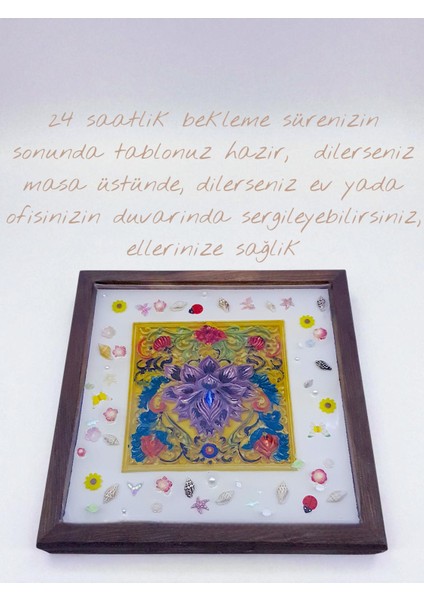 24 saatlik bekleme sürenizin
sonunda tablonuz hazir, dilerseniz
masa üstünde, dilerseniz ev yada
ofisinizin duvarinda sergileyebilirsiniz,
ellerinize sağlik